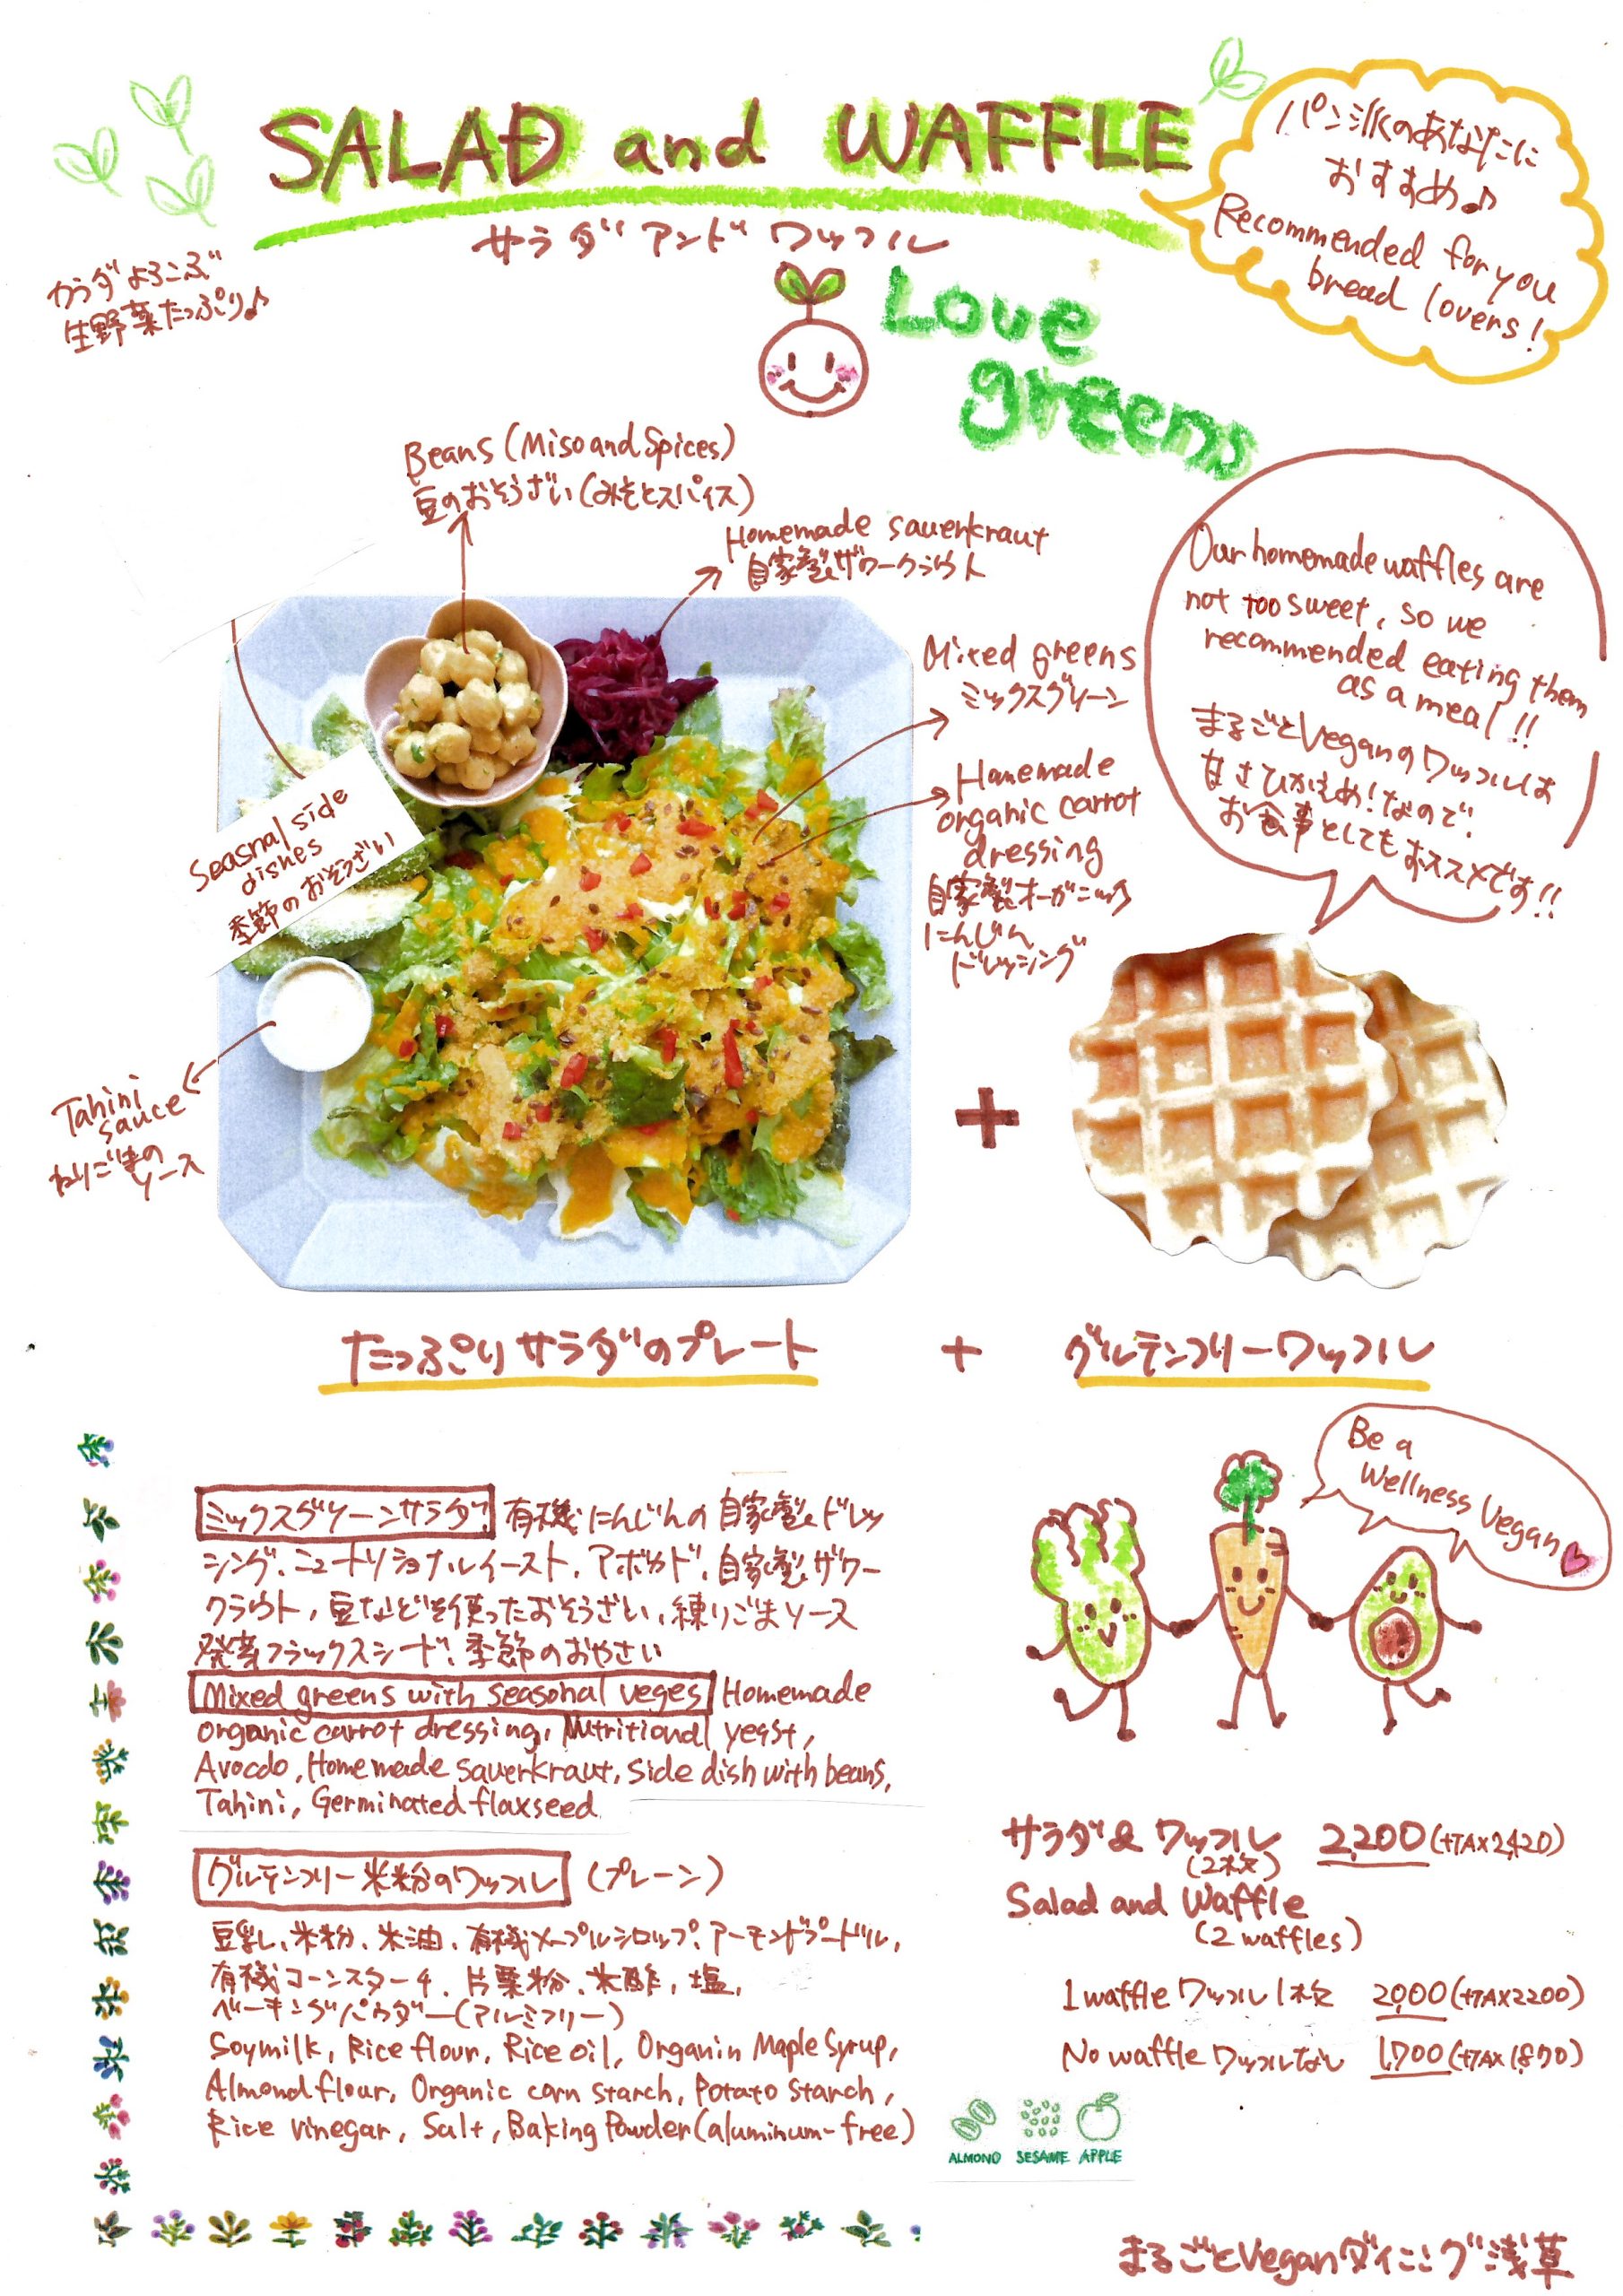 SALAD and WAFFLE
サラダ アンド ワッフル
パン派のあなたに
おすすめ♪
Recommended for you
bread lovers!
カラダよろこぶ
生野菜たっぷり♪
Love
greens
Beans (Miso and Spices)
豆のおそうざい(みそとスパイス)
Homemade sauerkraut
自家製ザワークラウト
Mixed greens
ミックスグリーン
Homemade
organic carrot
dressing
自家製オーガニック
にんじん
ドレッシング
Our homemade waffles are
not too sweet, so we
recommended eating them
as a meal!!
まるごとVeganのワッフルは
甘さひかえめ!なので!
お食事としてもおススメです!!
Seasnal side
dishes
季節のおそうざい
Tahini
sauce
ねりごまの
ソース
+
たっぷりサラダのプレート + グルテンフリーワッフル
Be a
Wellness Vegan
ミックスグリーンサラダ! 有機にんじんの自家製ドレッ
シング、ニュートリショナルイースト、アボカド、自家製ザワー
クラウト、豆などを使ったおそうざい、練りごまソース
発芽フラックスシード、季節のおやさい
Mixed greens with seasonal veges Homemade
organic carrot dressing, Nutritional yeast,
Avocdo, Homemade sauerkraut, side dish with beans,
Tahini, Germinated flaxseed
グルテンフリー米粉のワッフル (プレーン)
豆乳、米粉、米油、有機メープルシロップ、アーモンドプードル、
有機コーンスターチ、片栗粉、米酢、塩、
ベーキングパウダー(アルミフリー)
Soymilk, Rice flour, Rice oil, Organin Maple Syrup,
Almond flour, Organic corn starch, Potato starch,
Rice vinegar, Salt, Baking Powder(aluminum-free)
サラダ& ワッフル 2,200(+TAX2,420)
(2枚)
Salad and Waffle
(2 waffles)
1 waffle ワッフル1枚 2,000(+TAX2200)
No waffle ワッフルなし 1,700(+TAX1,870)
ALMOND SESAME APPLE
まるごとVeganダイニング浅草